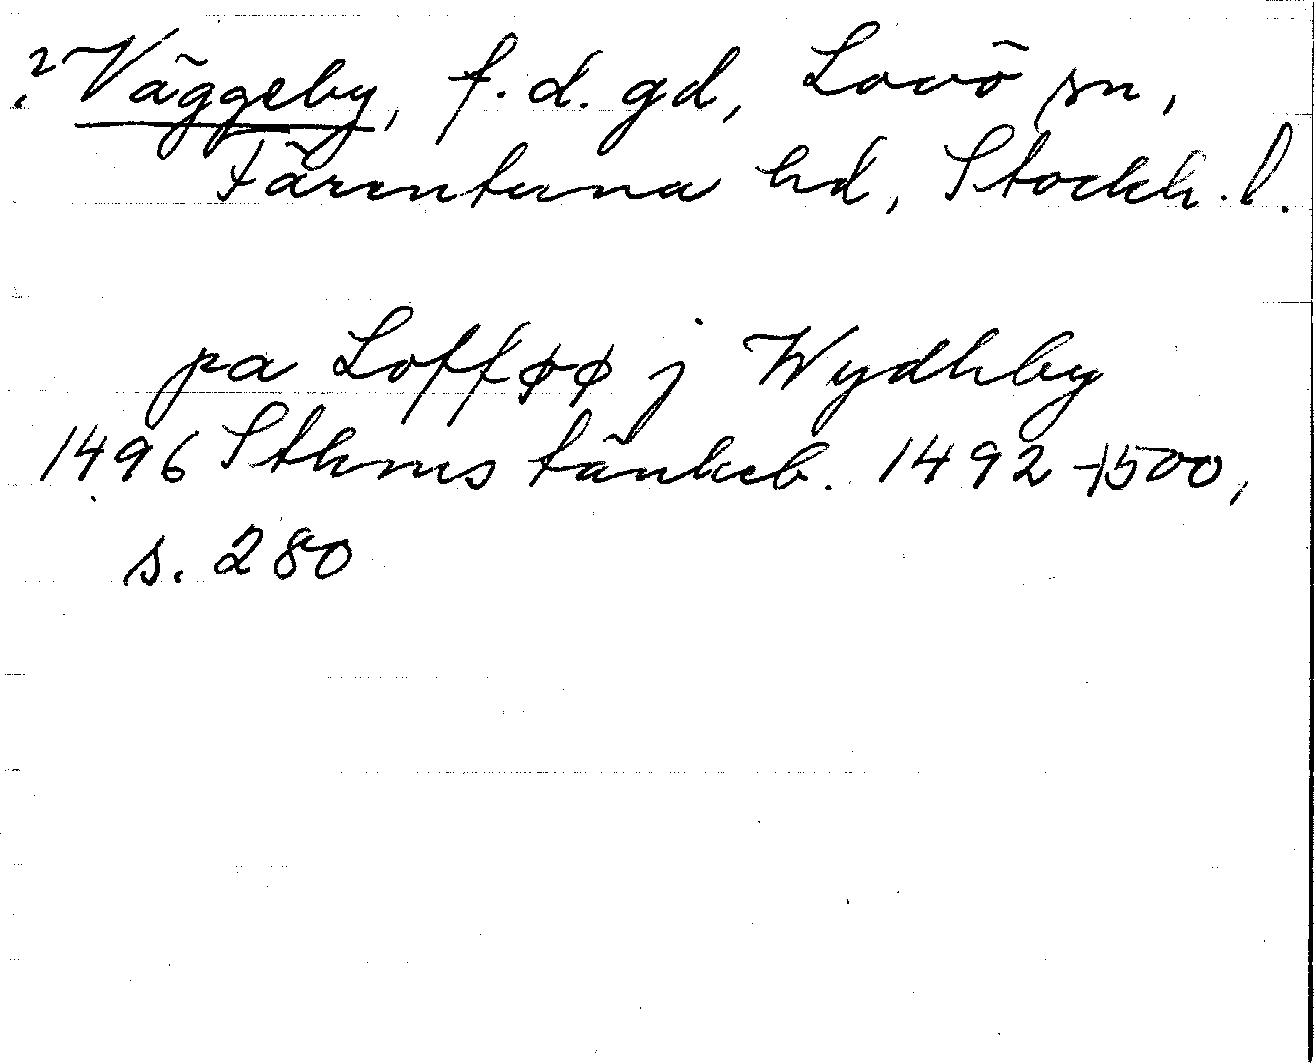 ? Väggeby, f.d. gd, Lovö sn,
Färentuna hd, Stockh. l.
pa Lofføø j Wydhby
1496 Sthms tänkeb. 1492-1500,
s. 280